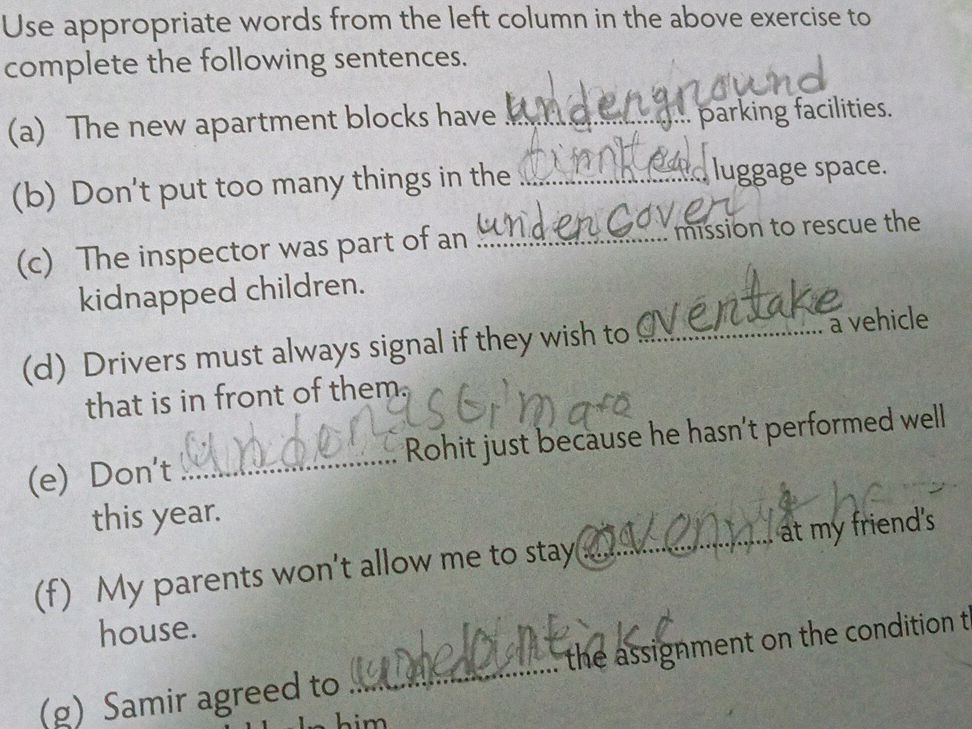 Use appropriate words from the left column in the above exercise to
complete the following sentences.
(a) The new apartment blocks have underground parking facilities.
(b) Don't put too many things in the luggage space.
(c) The inspector was part of an undercover mission to rescue the
kidnapped children.
(d) Drivers must always signal if they wish to overtake a vehicle
that is in front of them.
(e) Don't Rohit just because he hasn't performed well
this year.
(f) My parents won't allow me to stay at my friend's
house.
(g) Samir agreed to the assignment on the condition
him